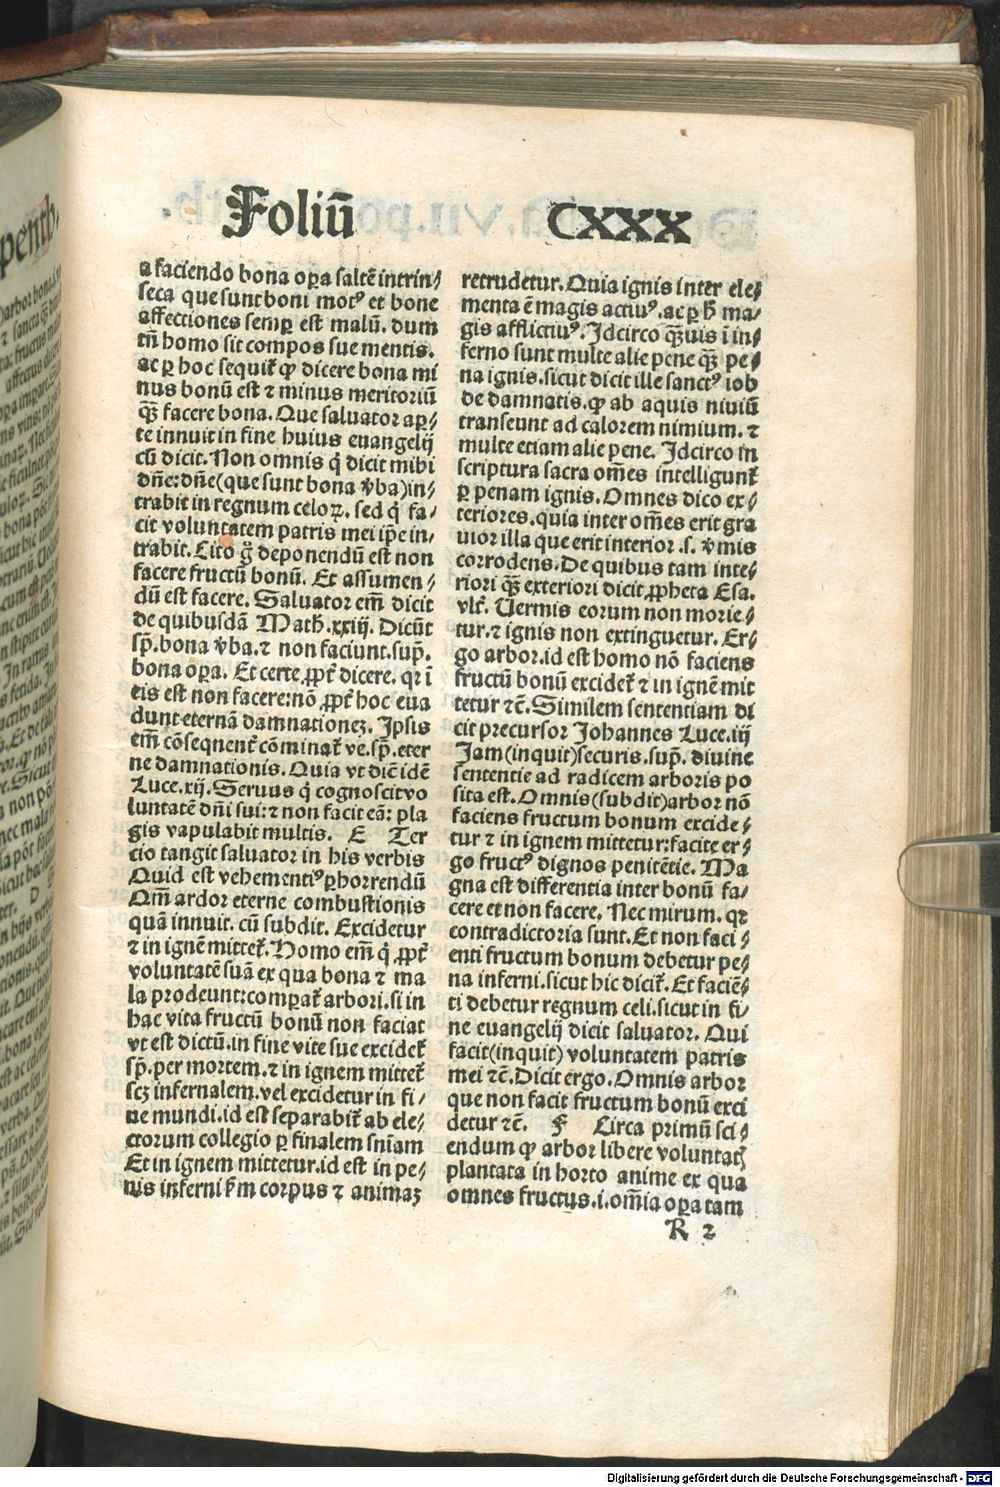 Foliū CXXX
a faciendo bona oꝑa saltē intrin⸗
seca que sunt boni motꝰ et bone
affectiones semꝑ est malū. dum
tn̄ homo sit compos sue mentis.
ac ꝑ hoc sequit̄ ꝙ dicere bona mi
nus bonū est ⁊ minus meritoriū
qꝫ̄ facere bona. Que saluator aper⸗
te innuit in fine huius euangelij
cū dicit. Non omnis q̇ dicit mihi
dn̄e: dn̄e (que sunt bona v̄ba) in⸗
trabit in regnum celoꝝ. sed q̇ fa⸗
cit voluntatem patris mei ip̄e in⸗
trabit. Cito g̊ deponendū est non
facere fructū bonū. Et assumen⸗
dū est facere. Saluator em̄ dicit
de quibusdā Math. xxiij. Dicūt
sꝑ. bona v̄ba. ⁊ non faciunt. sup̄.
bona oꝑa. Et certe ꝓpt̄ dicere. qꝛ ī
eis est non facere: nō ꝓpt̄ hoc eua
dunt eternā damnationeꝫ. Ipsis
em̄ cōseqnent̄ cōminat̄ ve. sꝑ. eter
ne damnationis. Quia vt dic̄ idē
Luce. xij. Seruus q̇ cognoscit vo
luntatē dn̄i sui: ⁊ non facit eā: pla
gis vapulabit multis. E Ter
cio tangit saluator in his verbis
Quid est vehementiꝰ ꝑhorrendū
Qm̄ ardor eterne combustionis
quā innuit. cū subdit. Excidetur
⁊ in ignē mittet̄. Homo em̄ q̇ ꝓpt̄
voluntatē suā ex qua bona ⁊ ma
la prodeunt: compat̄ arbori. si in
hac vita fructū bonū non faciat
vt est dictū. in fine vite sue excidet̄
sꝑ. per mortem. ⁊ in ignem mittet̄
scꝫ infernalem. vel excidetur in fi⸗
ne mundi. id est separabit̄ ab ele⸗
ctorum collegio ꝑ finalem sn̄iam
Et in ignem mittetur. id est in pe⸗
nis inferni ẜm corpus ⁊ animaꝫ
retrudetur. Quia ignis inter ele⸗
menta ē magis actiuꝰ. ac ꝑ ħ ma⸗
gis afflictiuꝰ. Idcirco qꝫ̄uis ī in⸗
ferno sunt multe alie pene qꝫ̄ pe⸗
na ignis. sicut dicit ille sanctꝰ iob
de damnatis. ꝙ ab aquis niuiū
transeunt ad calorem nimium. ⁊
multe etiam alie pene. Idcirco in
scriptura sacra om̄es intelligunt̄
ꝑ penam ignis. Omnes dico ex⸗
teriores. quia inter om̄es erit gra
uior illa que erit interior. s. v̄mis
corrodens. De quibus tam inte⸗
riori qꝫ̄ exteriori dicit ꝓpheta Esa.
vlt̄. Uermis eorum non morie⸗
tur. ⁊ ignis non extinguetur. Er⸗
go arbor. id est homo nō faciens
fructū bonū excidet̄ ⁊ in ignē mit
tetur ⁊c̄. Similem sententiam di
cit precursor Johannes Luce. iij
Jam (inquit) securis. sup̄. diuine
sententie ad radicem arboris po
sita est. Omnis (subdit) arbor nō
faciens fructum bonum excide⸗
tur ⁊ in ignem mittetur: facite er⸗
go fructꝰ dignos penitētie. Ma
gna est differentia inter bonū fa⸗
cere et non facere. Nec mirum. qꝛ
contradictoria sunt. Et non faci⸗
enti fructum bonum debetur pe⸗
na inferni. sicut hic dicit̄. Et faciē⸗
ti debetur regnum celi. sicut in fi⸗
ne euangelij dicit saluator. Qui
facit (inquit) voluntatem patris
mei ⁊c̄. Dicit ergo. Omnis arbor
que non facit fructum bonū exci
detur ⁊c̄. F Circa primū sci⸗
endum ꝙ arbor libere voluntaꝭ
plantata in horto anime ex qua
omnes fructus. i. om̄ia oꝑa tam
R 2
Digitalisierung gefördert durch die Deutsche Forschungsgemeinschaft - DFG